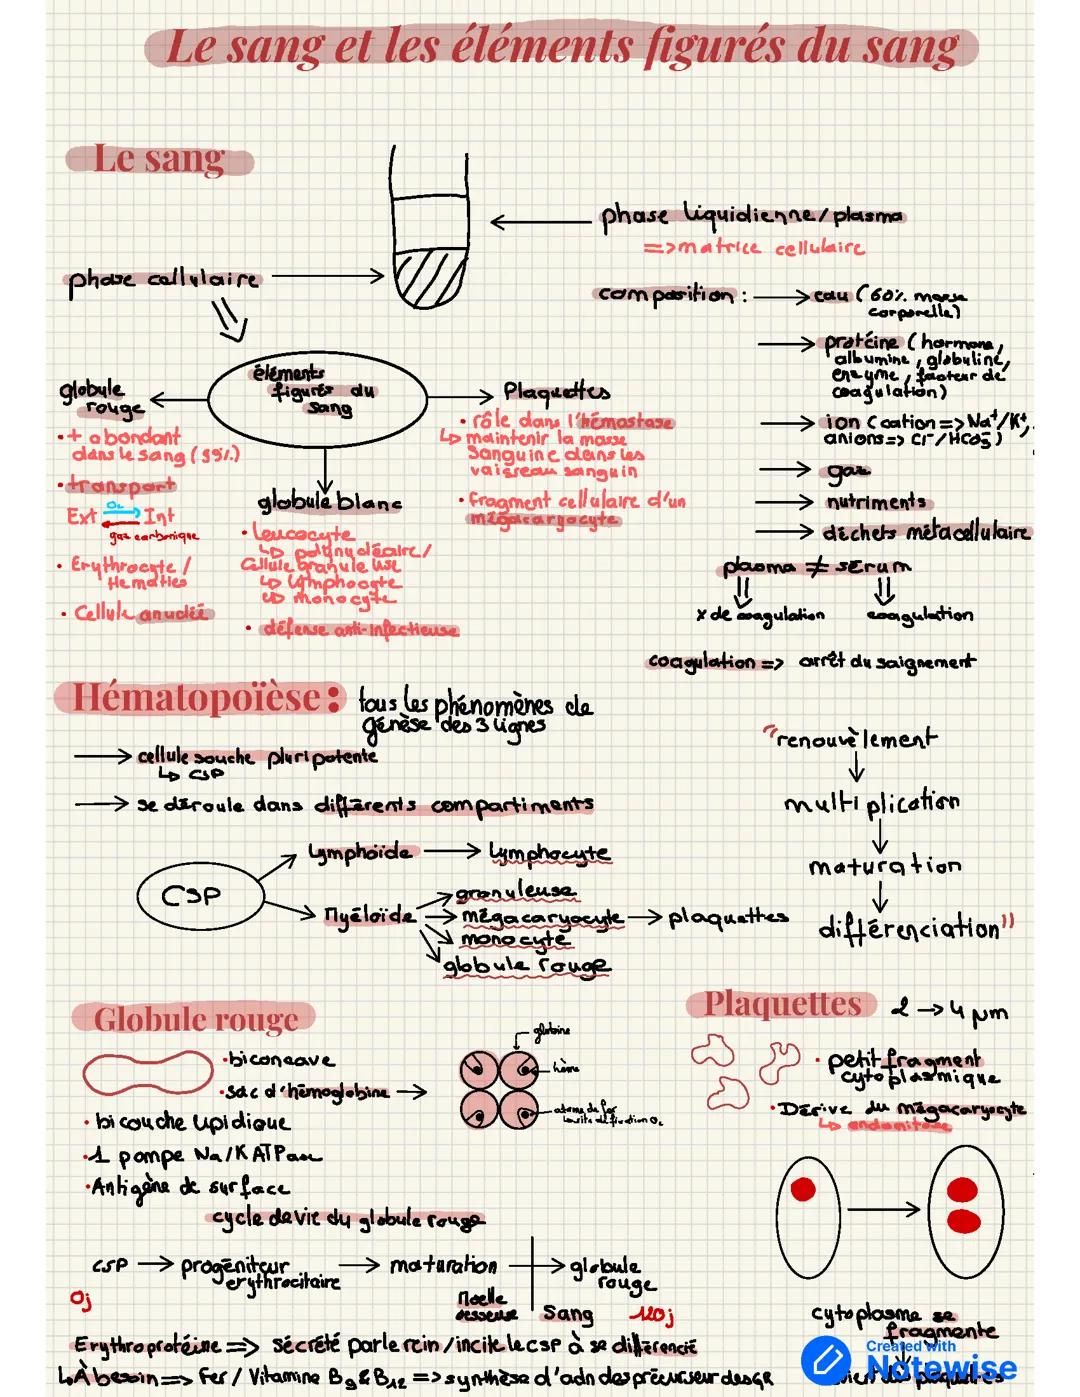 Le sang et les éléments figurés du sang
Le sang
phase liquidienne/plasma
=>matrice cellulaire
phase cellulaire
composition :
eau (60% masse
corporelle)
protéine (hormone,
albumine, globuline,
enzyme, facteur de
coagulation)
ion (cation => Na⁺/K⁺,
anions=> Cl⁻/HCO₃⁻)
gaz
nutriments
déchets métacellulaire
plasma ≠ sérum
x de coagulation
coagulation
coagulation => arrêt du saignement
éléments
figurés du
sang
globule
rouge
• + abondant
dans le sang (99%)
• transport
Ext O₂ Int
gaz carbonique
• Erythrocyte /
Hematies
• Cellule anucléé
globule blanc
• leucocyte
↳ polynucléaire/
Cellule Granuleuse
↳ lymphocyte
↳ monocyte
• défense anti-infectieuse
Plaquettes
• rôle dans l'hémostase
↳ maintenir la masse
Sanguine dans les
vaisseau sanguin
• Fragment cellulaire d'un
mégacaryocyte
Hématopoïèse:
tous les phénomènes de
génèse des 3 lignes
→ cellule souche pluripotente
↳ CSP
→ se déroule dans différents compartiments
CSP
lymphoïde → lymphocyte
Myéloïde
granuleuse
mégacaryocyte → plaquettes
monocyte
globule rouge
"renouvèlement
multiplication
maturation
différenciation"
Globule rouge
• biconcave
• sac d'hémoglobine →
globine
hème
atome de fer
• bicouche lipidique
• 1 pompe Na/K ATPase
• Antigène de surface
cycle de vie du globule rouge
CSP → progéniteur
erythrocitaire
→ maturation → globule
rouge
0j
Moelle
osseuse
Sang
120j
Erythroprotéine => sécrété par le rein/incite le CSP à se différencié
↳ À besoin => Fer / Vitamine B₉ & B₁₂ => synthèse d'adn des précurseur des GR
Plaquettes
2 → 4 µm
• petit fragment
cytoplasmique
• Dérive du mégacaryocyte
↳ endomitose
cytoplasme se
fragmente
Created with
Notewise